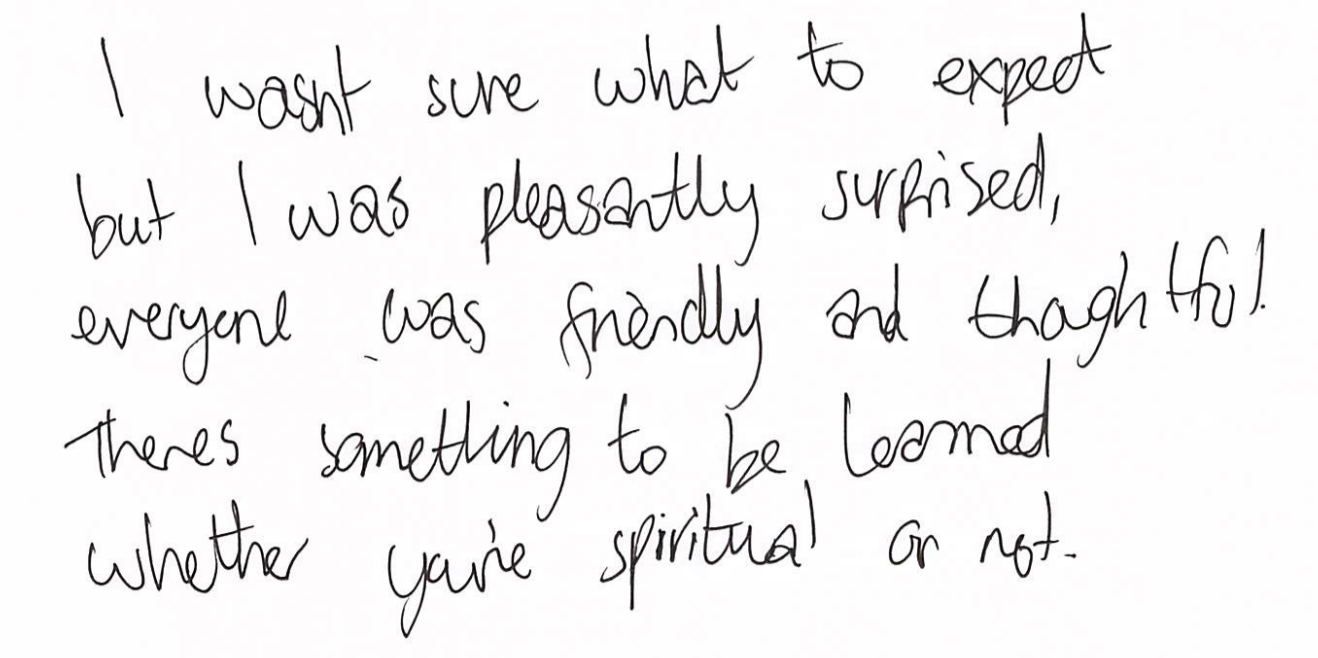 I wasnt sure what to expect
but I was pleasantly surprised,
everyone was friendly and thoughtful.
Theres something to be learned
whether you're spiritual or not.